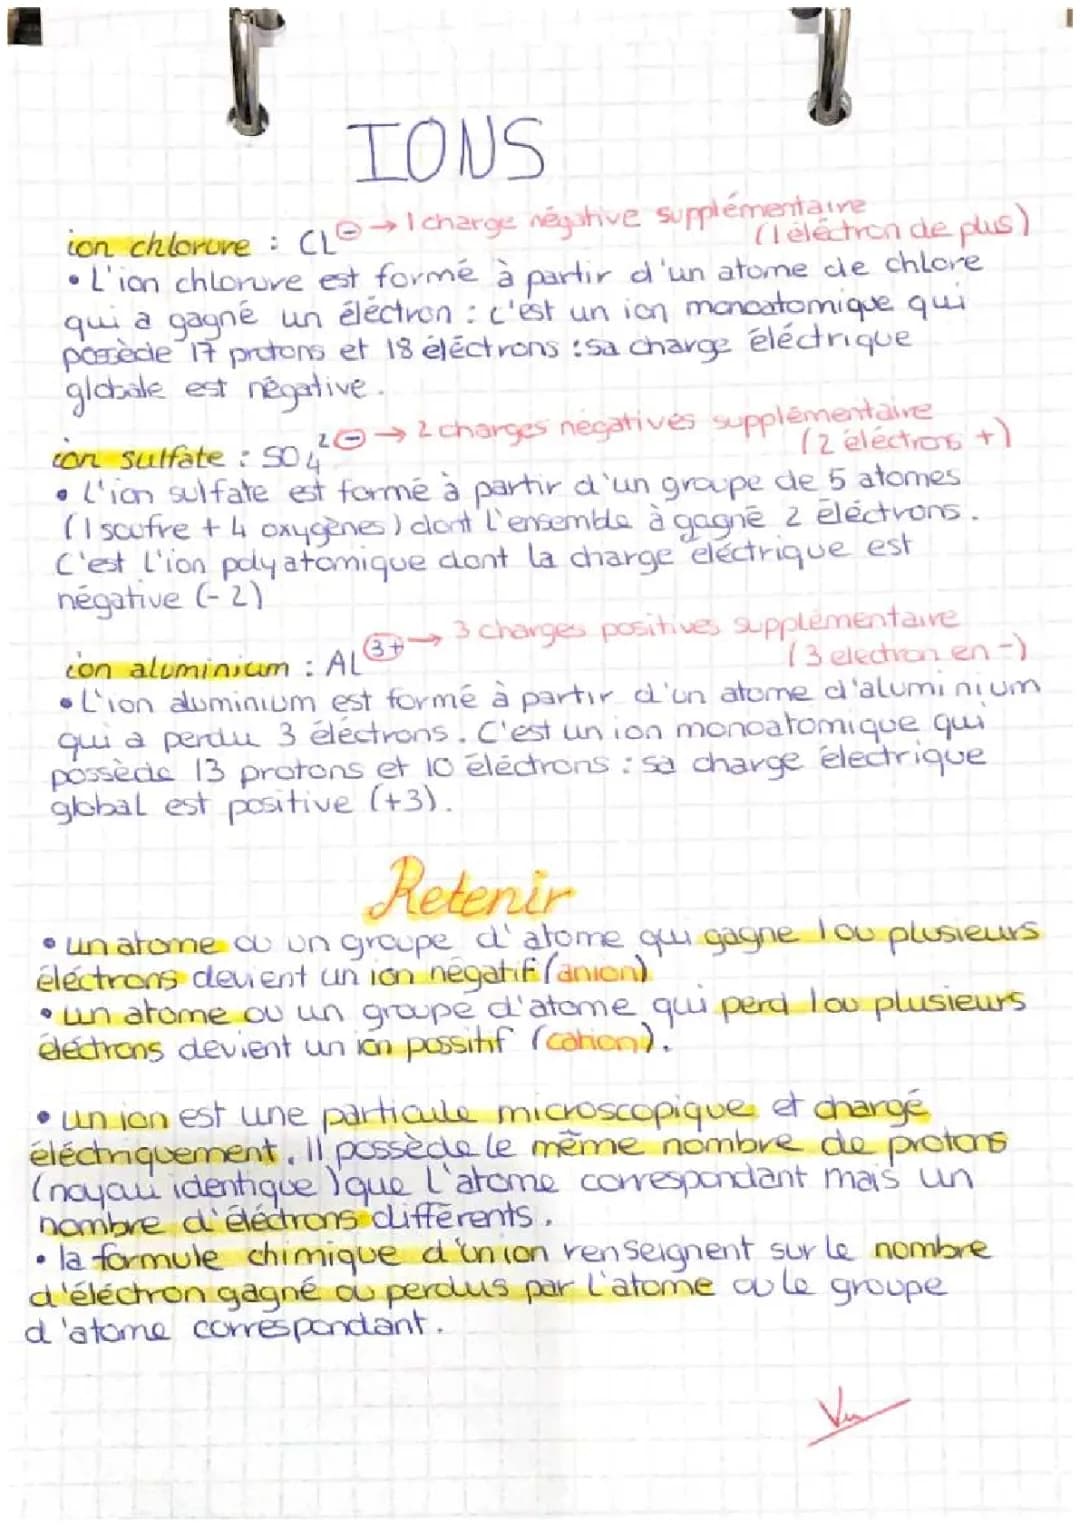 IONS
ion chlorure : CL⊖ → 1 charge négative supplémentaire
(1 éléctron de plus)
• L'ion chlorure est formé à partir d'un atome de chlore
qui a gagné un éléctron : c'est un ion monoatomique qui
possède 17 protons et 18 éléctrons : sa charge éléctrique
globale est négative.
ion sulfate : SO4 2⊖ → 2 charges négatives supplémentaire
(2 éléctrons +)
• L'ion sulfate est formé à partir d'un groupe de 5 atomes
(1 soufre + 4 oxygènes) dont l'ensemble à gagné 2 éléctrons.
C'est l'ion polyatomique dont la charge éléctrique est
négative (-2)
ion aluminium : AL 3+ → 3 charges positives supplémentaire
(3 electron en -)
• L'ion aluminium est formé à partir d'un atome d'aluminium
qui a perdu 3 éléctrons. C'est un ion monoatomique qui
possède 13 protons et 10 éléctrons : sa charge électrique
global est positive (+3).
Retenir
• un atome ou un groupe d'atome qui gagne 1 ou plusieurs
éléctrons devient un ion négatif (anion)
• un atome ou un groupe d'atome qui perd 1 ou plusieurs
éléctrons devient un ion possitif (cation).
• un ion est une particule microscopique et chargé
éléctriquement. Il possède le même nombre de protons
(noyau identique) que l'atome correspondant mais un
nombre d'éléctrons différents.
• la formule chimique d'un ion renseignent sur le nombre
d'éléctron gagné ou perdus par l'atome ou le groupe
d'atome correspondant.
Vu